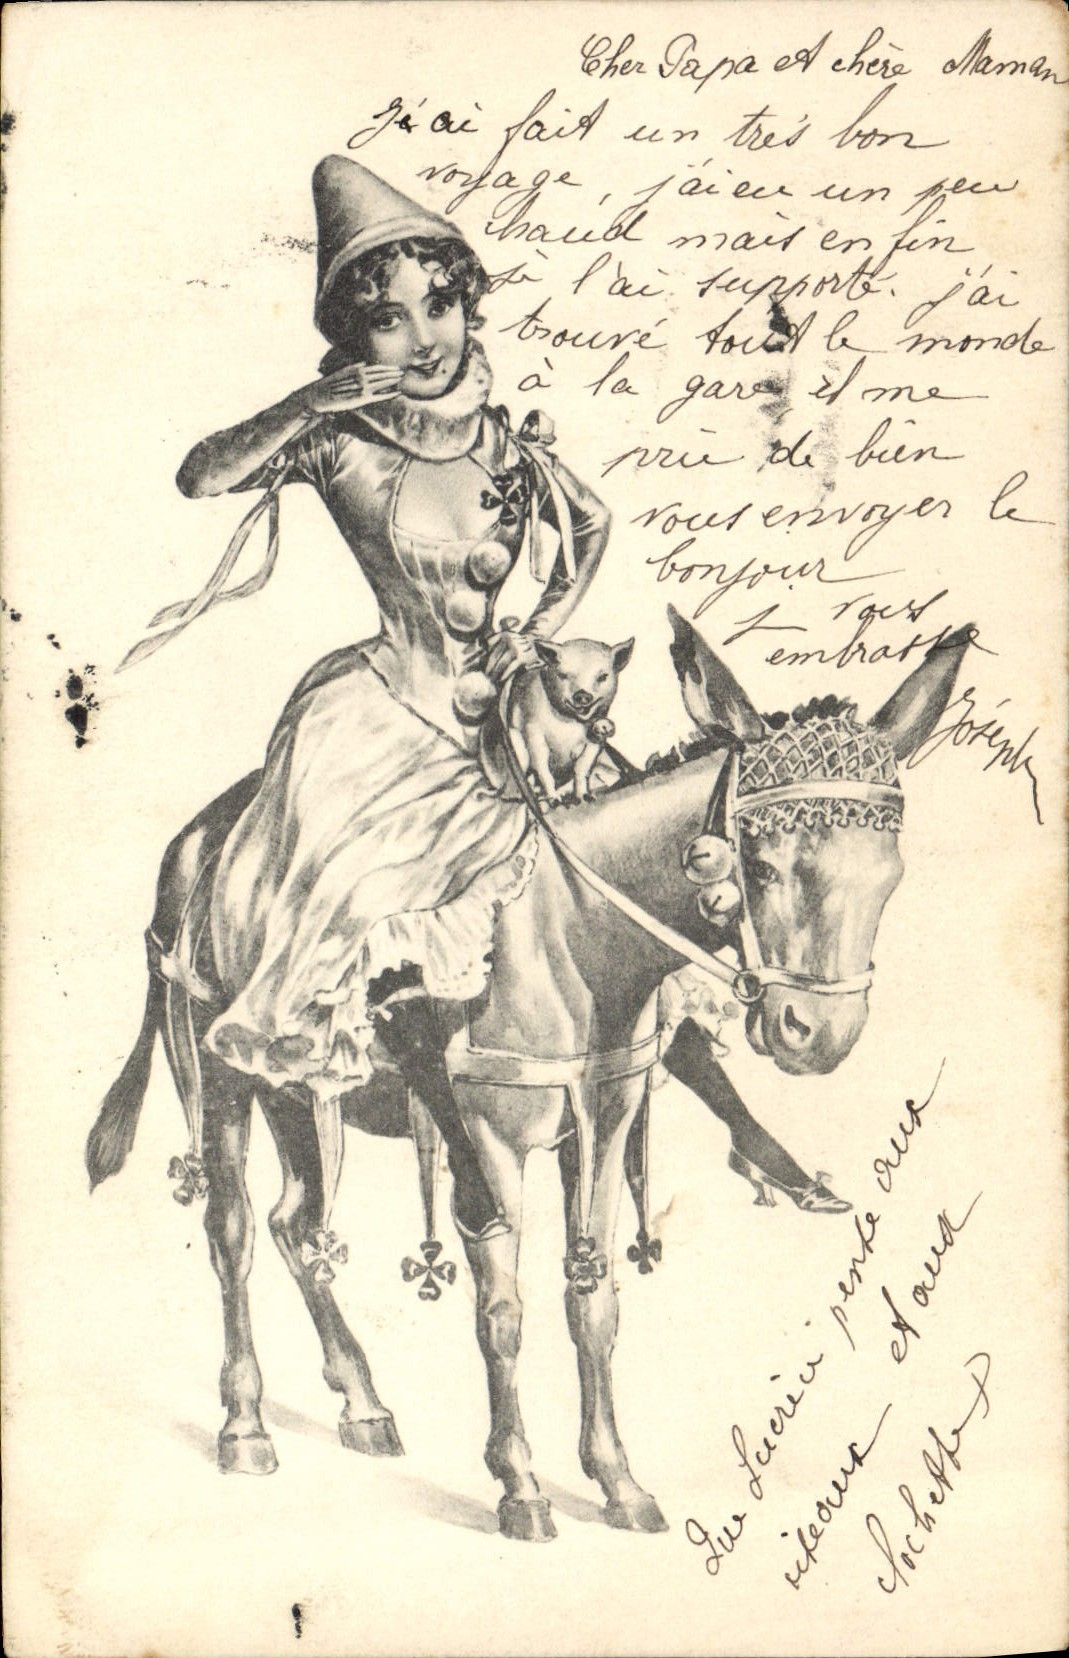 Cher Papa et chère Maman
j'ai fait un très bon
voyage, j'ai eu un peu
chaud mais en fin
je l'ai supporté. j'ai
trouvé tout le monde
à la gare il me
prie de bien
vous envoyer le
bonjour
j vous
embrasse
Joséph
Que Lucréci pense aux
oiseaux et aux
clochettes